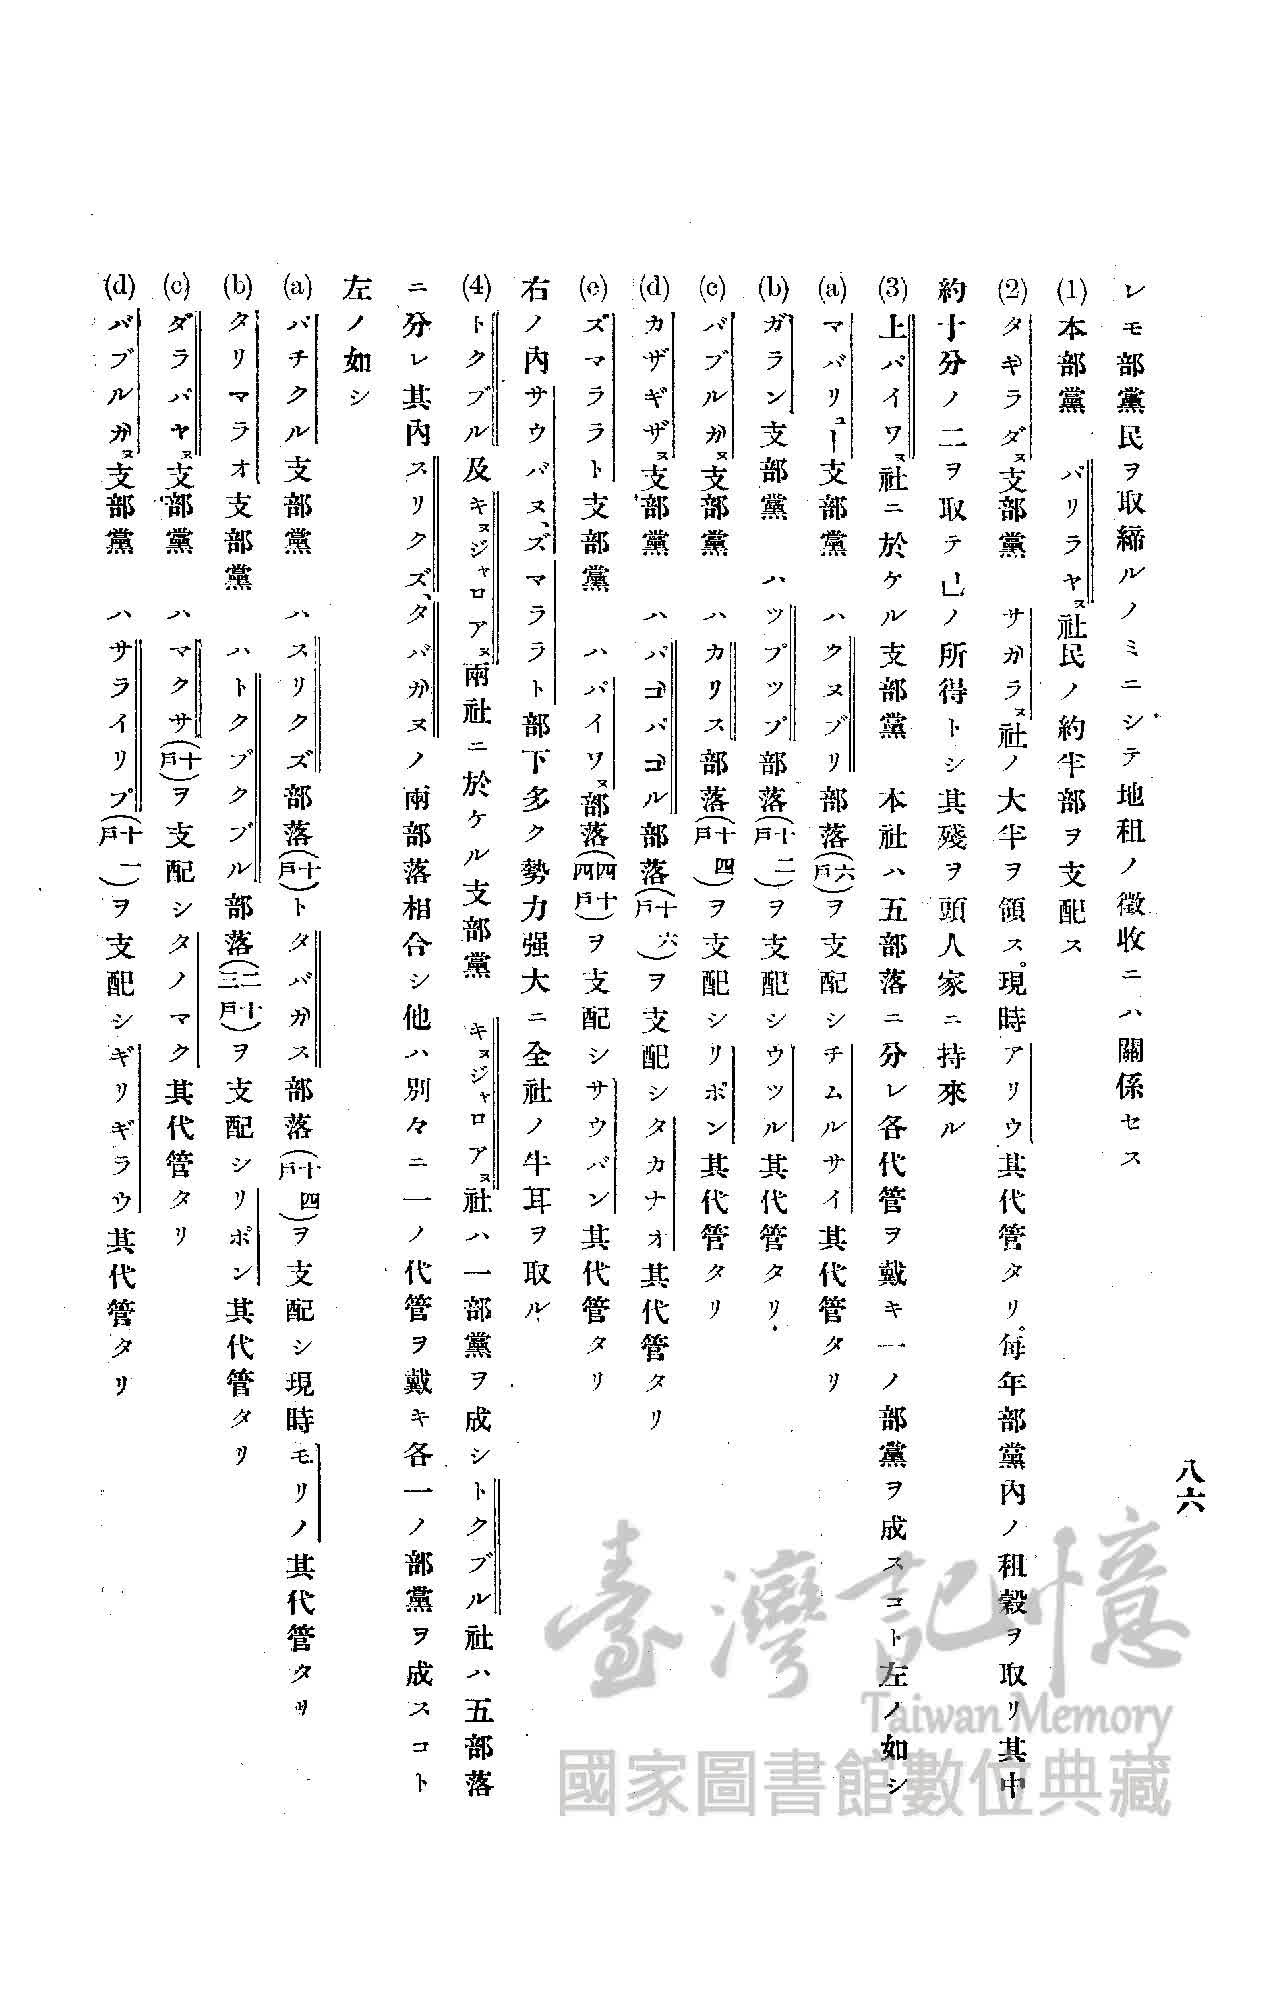 八六
レモ部黨民ヲ取締ルノミニシテ地租ノ徵收ニハ關係セス
(1)本部黨　パリラヤヌ社民ノ約半部ヲ支配ス
(2)タキラダヌ支部黨　サガラヌ社ノ大半ヲ領ス。現時アリウ其代管タリ。每年部黨内ノ租穀ヲ取リ其中
約十分ノ二ヲ取テ己ノ所得トシ其殘ヲ頭人家ニ持來ル
(3)上パイワヌ社ニ於ケル支部黨　本社ハ五部落ニ分レ各代管ヲ戴キ一ノ部黨ヲ成スコト左ノ如シ
(a)マバリュー支部黨　ハクヌブリ部落(六戶)ヲ支配シチムルサイ其代管タリ
(b)ガラン支部黨　ハツプツプ部落(十二戶)ヲ支配シウツル其代管タリ
(c)バブルガヌ支部黨　ハカリス部落(十四戶)ヲ支配シリポン其代管タリ
(d)カザギザヌ支部黨　ハバゴバゴル部落(十六戶)ヲ支配シタカナオ其代管タリ
(e)ズマララト支部黨　ハパイワヌ部落(四十四戶)ヲ支配シサウバン其代管タリ
右ノ内サウバヌ、ズマララト部下多ク勢力强大ニ全社ノ牛耳ヲ取ル
(4)トクブル及キヌジャロアヌ兩社ニ於ケル支部黨　キヌジャロアヌ社ハ一部黨ヲ成シトクブル社ハ五部落
ニ分レ其内スリクズ、タバガヌノ兩部落相合シ他ハ別々ニ一ノ代管ヲ戴キ各一ノ部黨ヲ成スコト
左ノ如シ
(a)パチクル支部黨　ハスリクズ部落(十戶)トタバガス部落(十四戶)ヲ支配シ現時モリノ其代管タリ
(b)タリマラオ支部黨　ハトクブクブル部落(二十三戶)ヲ支配シリポン其代管タリ
(c)ダラバヤヌ支部黨　ハマクサ(十戶)ヲ支配シタノマク其代管タリ
(d)バブルガヌ支部黨　ハサライリプ(十一戶)ヲ支配シギリギラウ其代管タリ
臺灣記憶
Taiwan Memory
國家圖書館數位典藏